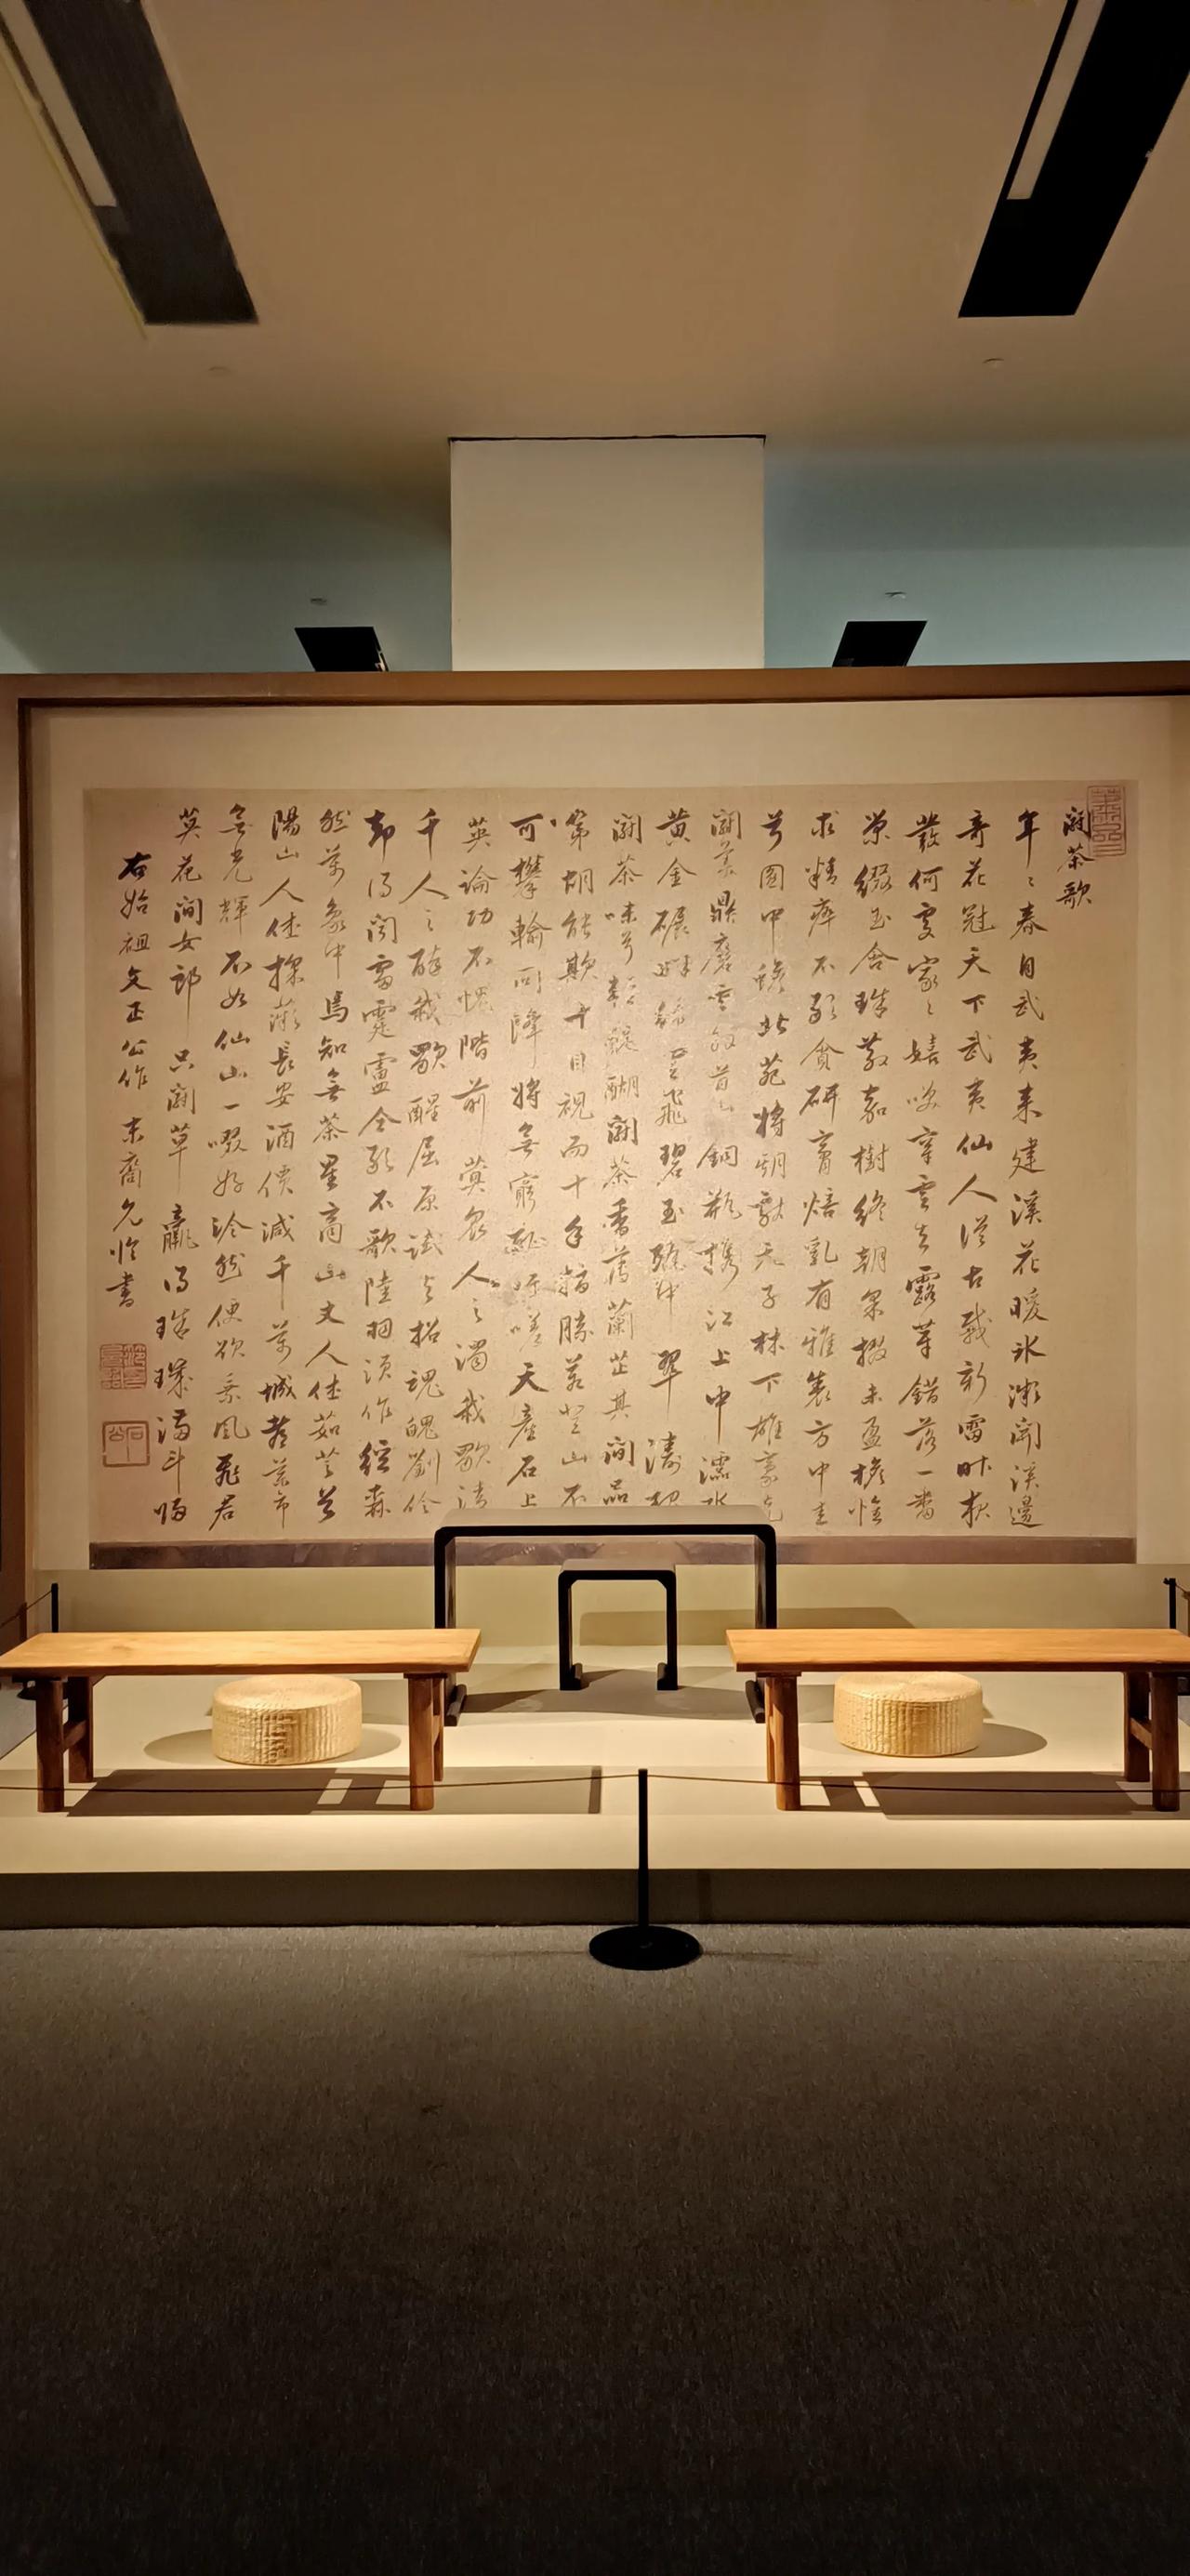 鬬茶歌
年〻春自武夷来建溪花暖氷澌開溪邊
奇花冠天下武夷仙人從古栽新雷昨夜
發何處家〻嬉笑穿雲去露芽錯落一番
榮綴玉含珠散嘉樹終朝采掇未盈襜惟
求精粹不敢貪研膏焙乳有雅製方中圭
兮圓中蟾北苑將期獻天子林下雄豪先
鬬美鼎磨雲外首山銅瓶攜江上中濡水
黄金碾畔綠塵飛碧玉甌中翠濤起
鬬茶味兮輕醍醐鬬茶香薄蘭芷其間品
第胡能欺十目視而十手指勝若登山不
可攀輸同降將無窮恥吁嗟天產石上
英論功不愧階前蓂衆人之濁我歌清
千人之醉我歌醒屈原試与招魂魄劉伶
却得聞雷霆盧仝敢不歌陸羽須作經森
然萬象中焉知無茶星商山丈人休茹芝首
陽山人休採薇長安酒價減千萬城都藥市
無光輝不如仙山一啜好泠然便欲乘風飛君
莫花間女郎只鬬草贏得珠璣滿斗歸
右始祖文正公作 末裔允臨書